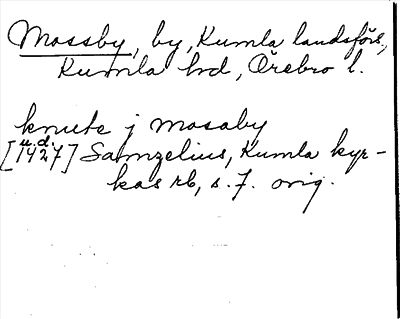 Mossby, by, Kumla landsförs.,
Kumla hd, Örebro l.
knute j mosaby
u.d.
[1427] Samzelius, Kumla kyr-
kas rb, s. 7. orig.